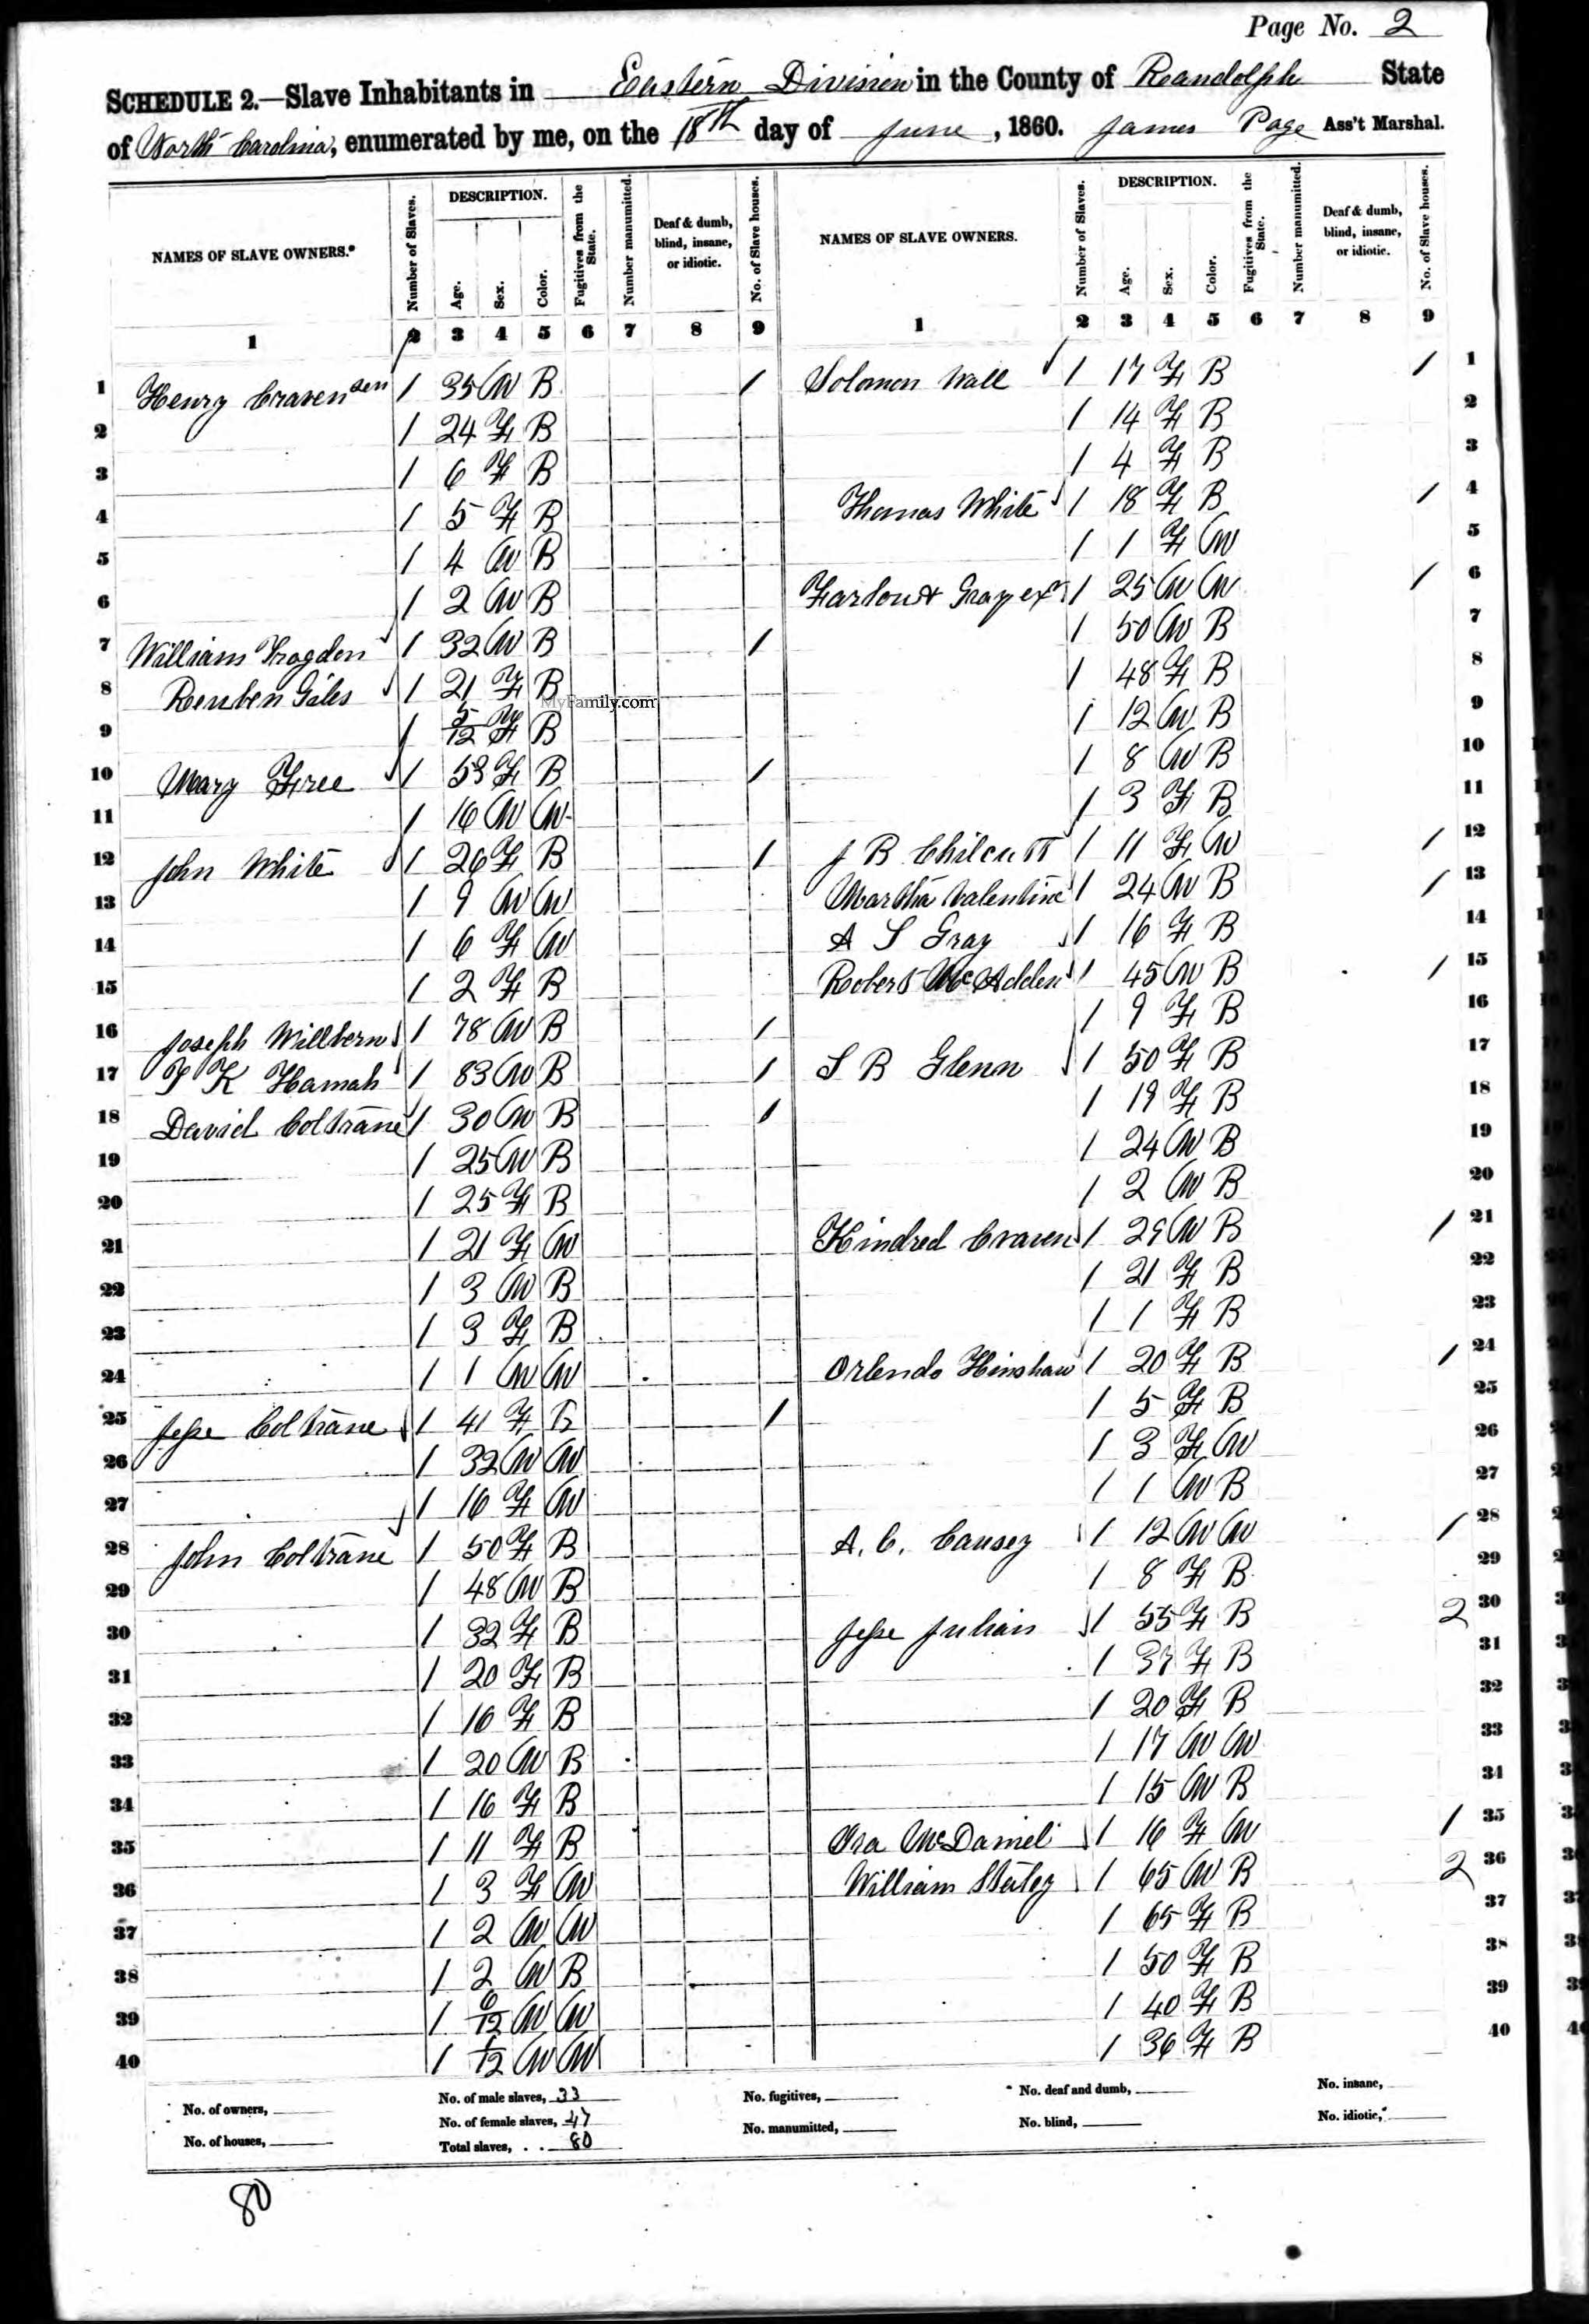 Page No. 2
SCHEDULE 2.—Slave Inhabitants in Eastern Division in the County of Randolph State
of North Carolina, enumerated by me, on the 18th day of June, 1860. James Page Ass't Marshal.
NAMES OF SLAVE OWNERS.* Number of Slaves. DESCRIPTION. Age. Sex. Color. Fugitives from the State. Number manumitted. Deaf & dumb, blind, insane, or idiotic. No. of Slave houses. NAMES OF SLAVE OWNERS. Number of Slaves. DESCRIPTION. Age. Sex. Color. Fugitives from the State. Number manumitted. Deaf & dumb, blind, insane, or idiotic. No. of Slave houses.
1 2 3 4 5 6 7 8 9 1 2 3 4 5 6 7 8 9
1 Henry Craven sen 1 35 M B 1 Solomon Wall 1 17 F B 1 1
2 1 24 F B 1 14 F B 2
3 1 6 F B 1 4 F B 3
4 1 5 F B Thomas White 1 18 F B 1 4
5 1 4 M B 1 1 F M 5
6 1 2 M B Gray 1 25 M M 1 6
7 William Trogden 1 32 M B 1 1 50 M B 7
8 Reuben Giles 1 21 F B 1 48 F B 8
MyFamily.com
9 1 5/12 F B 1 12 M B 9
10 Mary Free 1 53 F B 1 1 8 M B 10
11 1 16 M M 1 3 F B 11
12 John White 1 26 F B 1 J B Chilcutt 1 11 F M 1 12
13 1 9 M M Martha Valentine 1 24 M B 1 13
14 1 6 F M A S Gray 1 16 F B 14
15 1 2 F B Robert McAdden 1 45 M B 1 15
16 Joseph Willbern 1 78 M B 1 1 9 F B 16
17 K Hamah 1 83 M B 1 S B Glenn 1 50 F B 17
18 David Coltrane 1 30 M B 1 1 19 F B 18
19 1 25 M B 1 24 M B 19
20 1 25 F B 1 2 M B 20
21 1 21 F M Kindred Craven 1 29 M B 1 21
22 1 3 M B 1 21 F B 22
23 1 3 F B 1 1 F B 23
24 1 1 M M Orlendo Hinshaw 1 20 F B 1 24
25 Jesse Coltrane 1 41 F B 1 1 5 F B 25
26 1 32 M M 1 3 F M 26
27 1 16 F M 1 1 M B 27
28 John Coltrane 1 50 F B A. C. Causey 1 12 M M 1 28
29 1 48 M B 1 8 F B 29
30 1 32 F B Jesse Julian 1 55 F B 2 30
31 1 20 F B 1 37 F B 31
32 1 16 F B 1 20 F B 32
33 1 20 M B 1 17 M M 33
34 1 16 F B 1 15 M B 34
35 1 11 F B Ora McDaniel 1 16 F M 1 35
36 1 3 F M William Staley 1 65 M B 2 36
37 1 2 M M 1 65 F B 37
38 1 2 M B 1 50 F B 38
39 1 6/12 M M 1 40 F B 39
40 1 1/12 M M 1 36 F B 40
No. of owners, No. of male slaves, 33 No. fugitives, No. deaf and dumb, No. insane,
No. of houses, No. of female slaves, 47 No. manumitted, No. blind, No. idiotic,
Total slaves, . . 80
80